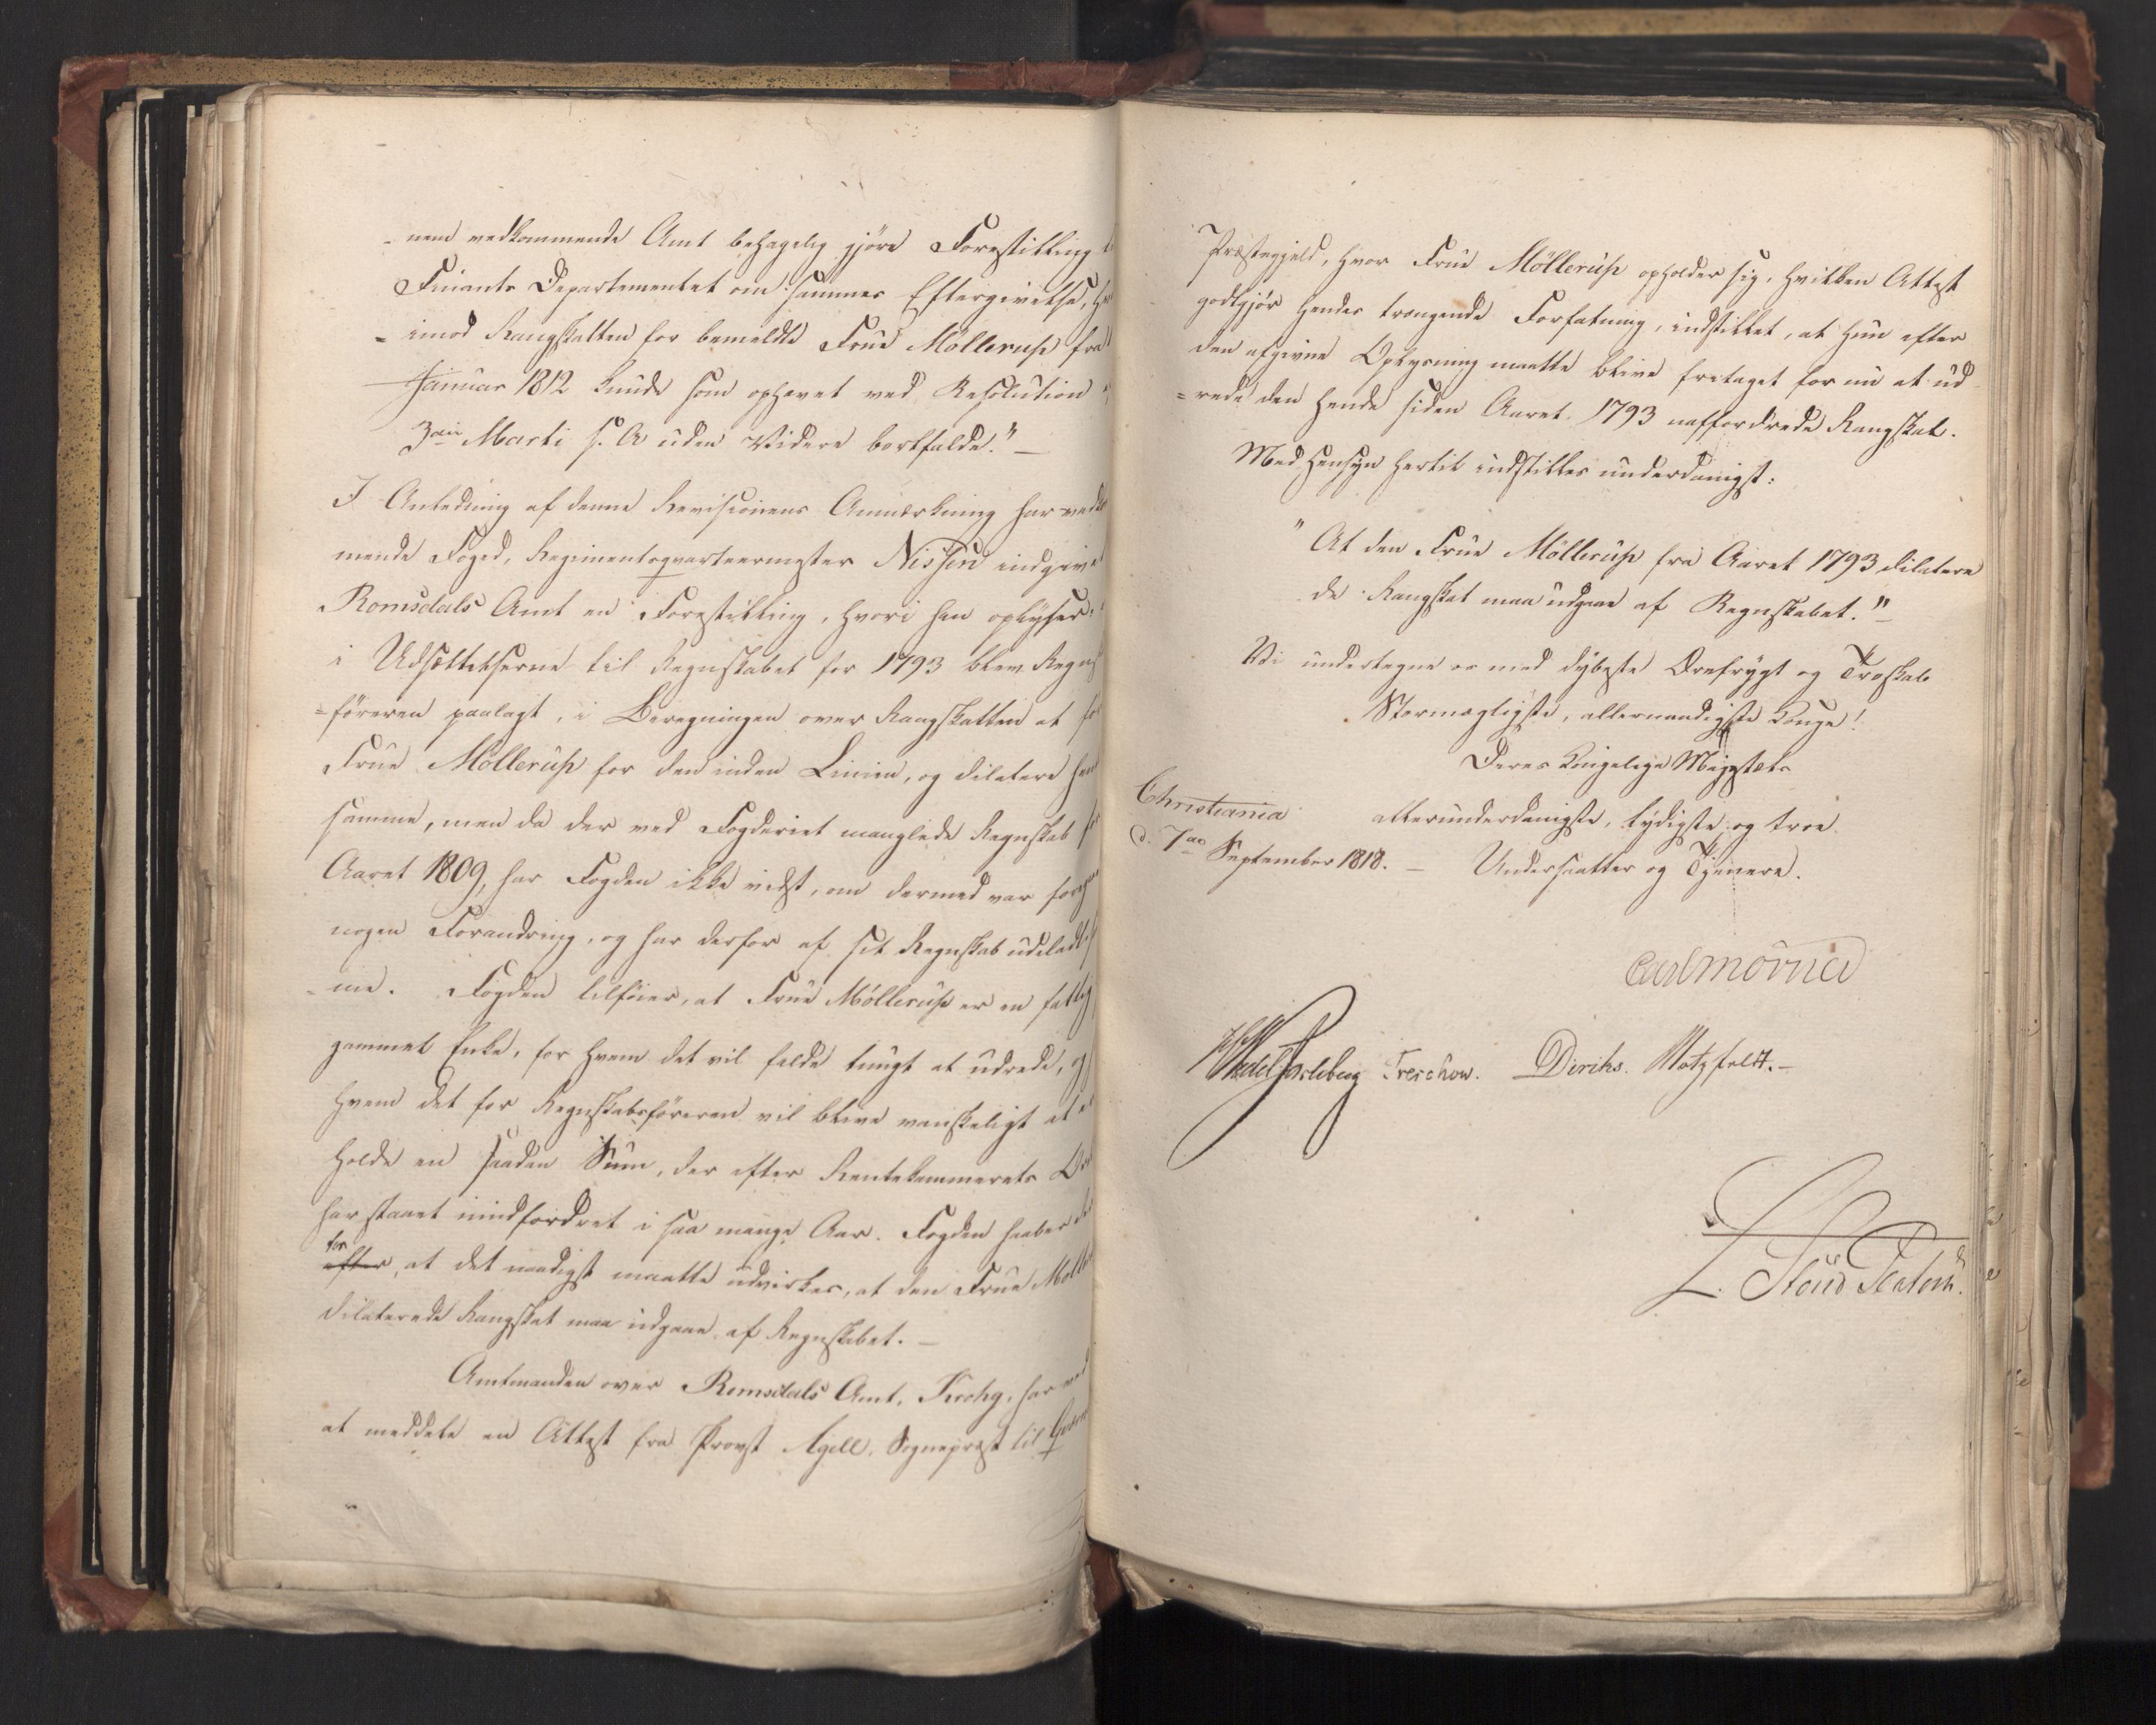 -nem vedkommende Amt behagelig gjöre Forestilling
Finants Departementet om sammes Eftergivelse,
=imod Rangskatten for bemeldte Frue Möllerup fra
Januar 1812 kunde som ophævet ved Resolution
3die Marti s. A uden Videre bortfalde." —
I Anledning af denne Revisionens Anmærkning har ved
mende Foged, Regimentsqvarteermester Nissen indgive
Romsdals Amt en Forestilling, hvori han oplyser:
i Udsættelserne til Regnskabet for 1793 blev Regns
=föreren paalagt, i Beregningen over Rangskatten at
Frue Möllerup for den inden Linien, og dilatere
samme, men da der ved Fogderiet manglede Regnskab
Aaret 1809, har Fogden ikke vidst, om dermed var
nogen Forandring, og har derfor af sit Regnskab udeladt
-me. Fogden tilföier, at Frue Möllerup er en fattig
gammel Enke, for hvem det vil falde tungt at udrede,
hvem det for Regnskabsföreren vil blive vanskeligt at
holde en saadan Sum, der efter Rentekammerets
har staaet uindfordret i saa mange Aar. Fogden haaber
for
efter, at det naadigst maatte udvirkes, at den Frue Mölle
dilaterede Rangskat maa udgaae af Regnskabet. —
Amtmanden over Romsdals Amt, Krohg, har ved
at meddele en Attest fra Provst Agell, Sognepræst til
Præstegjeld, hvor Frue Möllerup opholder sig, hvilken Attest
godtgjör hendes trængende Forfatning, indstillet, at hun efter
den afgivne Oplysning maatte blive fritaget for nu at ud
=rede den hende siden Aaret 1793 affordrede Rangskat.
Med Hensyn hertil indstilles underdanigst:
"At den Frue Möllerup fra Aaret 1793 dilatere
de Rangskat maa udgaae af Regnskabet." —
Vi undertegne os med dybeste Ærefrygt og Troskab
Stormægtigste, allernaadigste Konge!
Deres Kongelige Majestæts
Christiania allerunderdanigste, lydigste og troe
d. 7de September 1818. — Undersaatter og Tjenere.
Carl Mörner
Wedel Jarlsberg Treschow. Diriks. Motzfeldt. —
L. Stoud Platou.